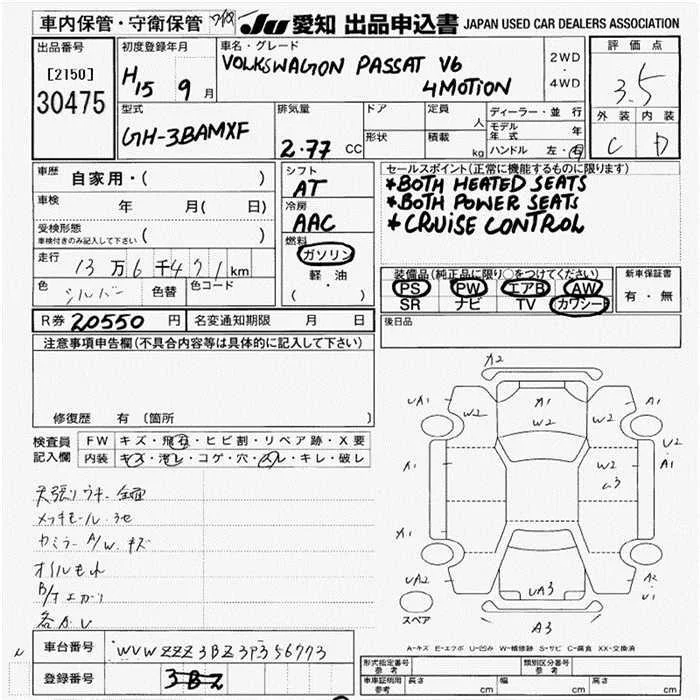 車内保管・守衛保管 JU 愛知 出品申込書 JAPAN USED CAR DEALERS ASSOCIATION
出品番号 初度登録年月 車名・グレード 評価点
[2150] H15 9 月 VOLKSWAGON PASSAT V6 2WD
30475 4MOTION ・ 4WD 3.5
型式 排気量 ドア 定員 人 ディーラー・並行 外装 内装
GH-3BAMXF 2.77 CC 形状 積載 kg モデル年式 年 C D
ハンドル 左・右
車歴 自家用・( ) シフト セールスポイント(正常に機能するものに限ります)
AT *BOTH HEATED SEATS
車検 年 月( 日) 冷房 *BOTH POWER SEATS
AAC *CRUISE CONTROL
受検形態 ( )
車検付きのみ記入して下さい 燃料
走行 13万6千471km ガソリン 装備品(純正品に限り○をつけてください) 新車保証書
軽・油 PS PW エアB AW 有・無
色 シルバー 色替 色コード ( ) SR ナビ TV カワシート
R券 20550 円 名変通知期限 月 日 後日品
注意事項申告欄(不具合内容等は具体的に記入して下さい)
修復歴 有 〔箇所 〕
検査員 FW キズ・飛石・ヒビ割・リペア跡・X要
記入欄 内装 キズ・汚レ・コゲ・穴・スレ・キレ・破レ
メッキモール
A/W キズ
A2
UA1 A1 A1
W2 W2 U2
A1 W2 A1
A1
UA2 UA3 A2
スペア A3 U1
A-キズ E-エクボ U-凹み W-補修跡 S-サビ C-腐食 XX-交換済
車台番号 WVWZZZ3BZ3P356773
登録番号 3BZ
形式指定番号 参考 類別区分番号 参考
車庫証明用 参考 長さ cm 幅 cm 高さ cm